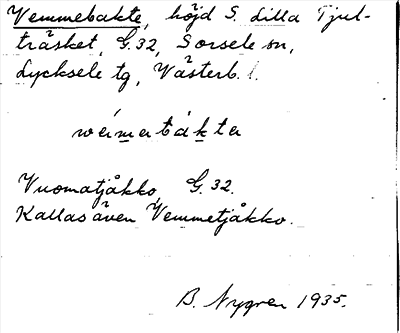 Vemmebakte, höjd S. Lilla Tjul-
träsket, G.32, Sorsele sn,
Lycksele tg, Västerb. l.
wémetbákte
Vuomatjåkko G.32.
Kallas även Vemmetjåkko.
B. Nygren 1935.